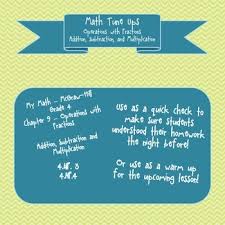 Math Tune Ups
Operations with Fractions
Addition, Subtraction, and Multiplication
My Math - McGraw-Hill
Grade 4
Chapter 9 - Operations with
Fractions
Addition, Subtraction and
Multiplication
4.NF.3
4.NF.4
Use as a quick check to
make sure students
understood their homework
the night before!
Or use as a warm up
for the upcoming lesson!